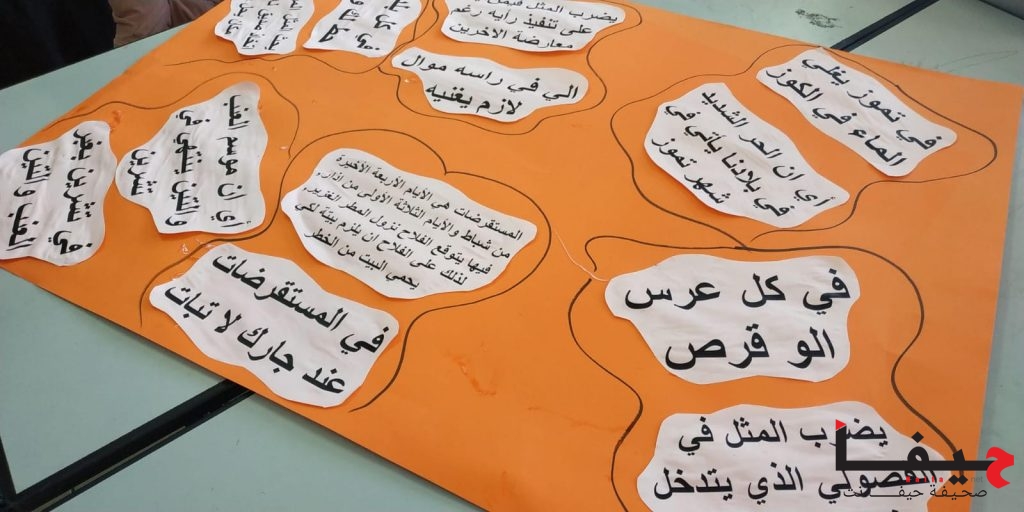 يضرب المثل فيمن
على تنفيذ رايه رغم
معارضة الآخرين
الي في راسه موال
لازم يغنيه
في تموز يغلي
الماء في الكوز
أي ان الحر الشديد
في بلادنا يأتي في
شهر تموز
أي ان موسم العنب
والتين ينتهي في
تشرين
في تشرين بفر
العنب والتين
المستقرضات هي الأيام الأربعة الأخيرة
من شباط والأيام الثلاثة الأولى من اذار
فيها يتوقع الفلاح نزول المطر الغزير
لذلك على الفلاح ان يلزم بيتة لكي
يحمي البيت من الخطر
في المستقرضات
عند جارك لا تبات
في كل عرس
الو قرص
يضرب المثل في
الفضولي الذي يتدخل
حيفا
صحيفة حيفا نت